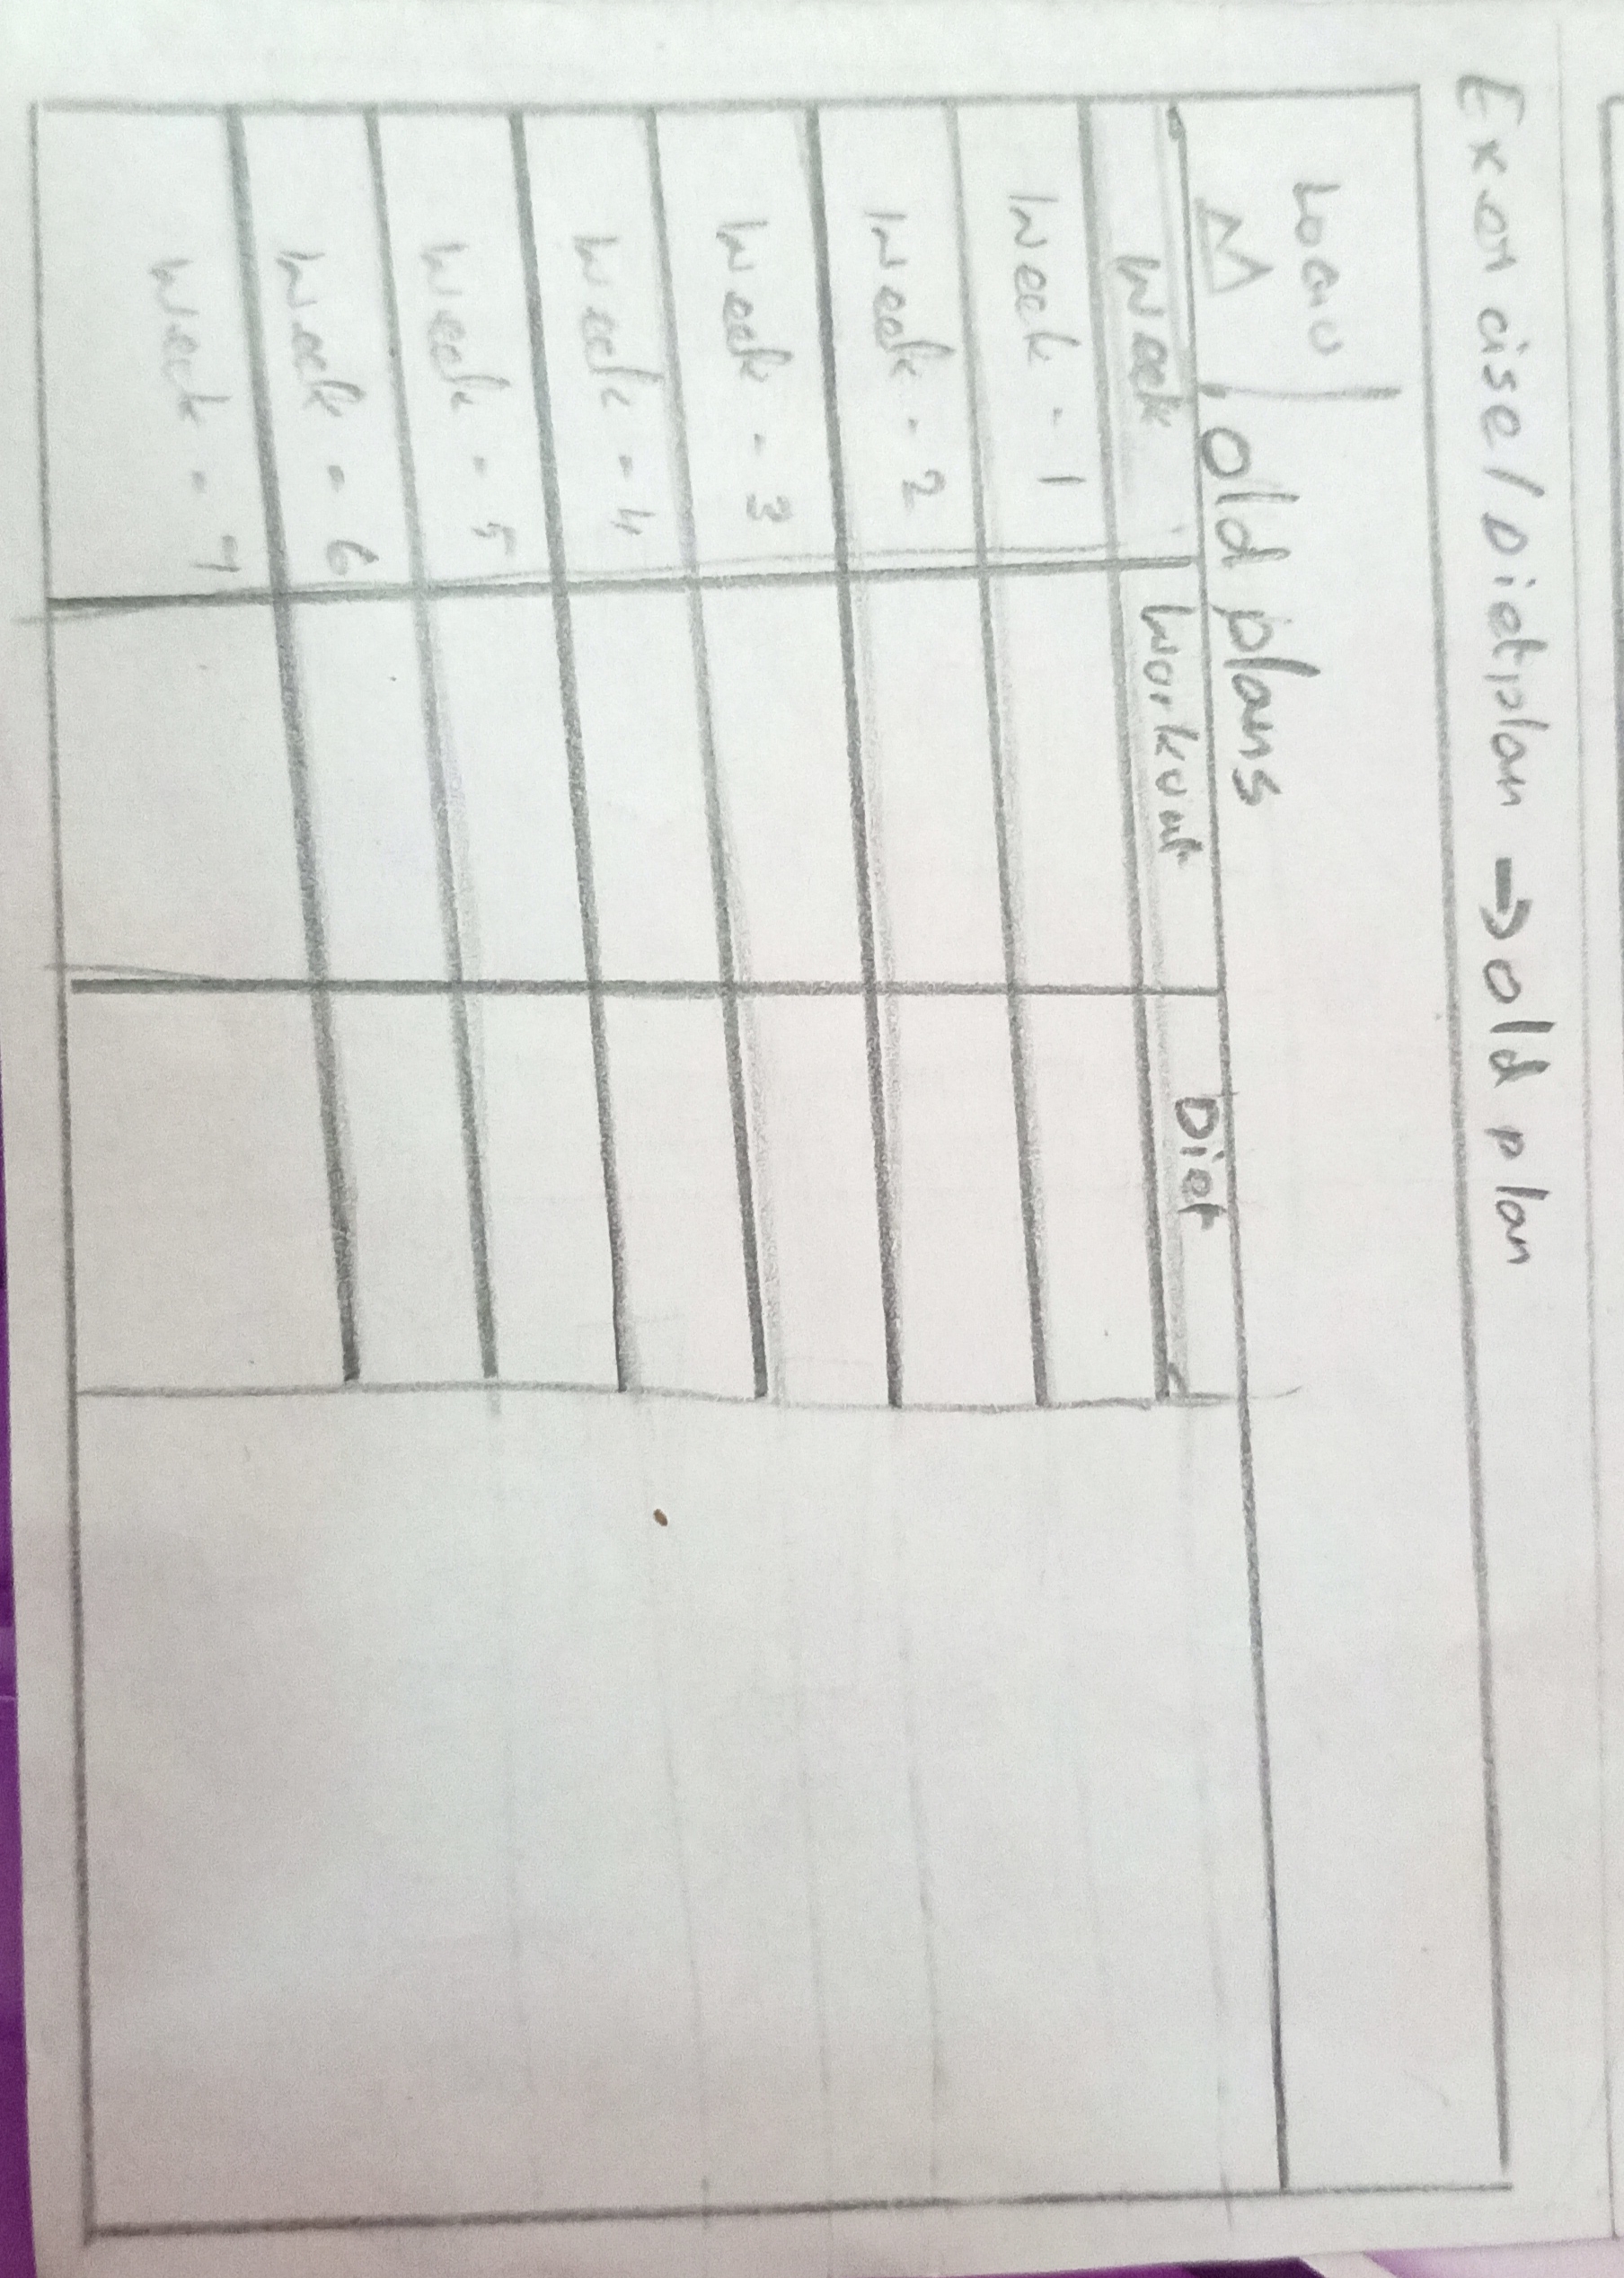 Exercise/Dietplan → old plan
old plans
Week Workout Diet
Week - 1
Week - 2
Week - 3
Week - 4
Week - 5
Week - 6
Week - 7